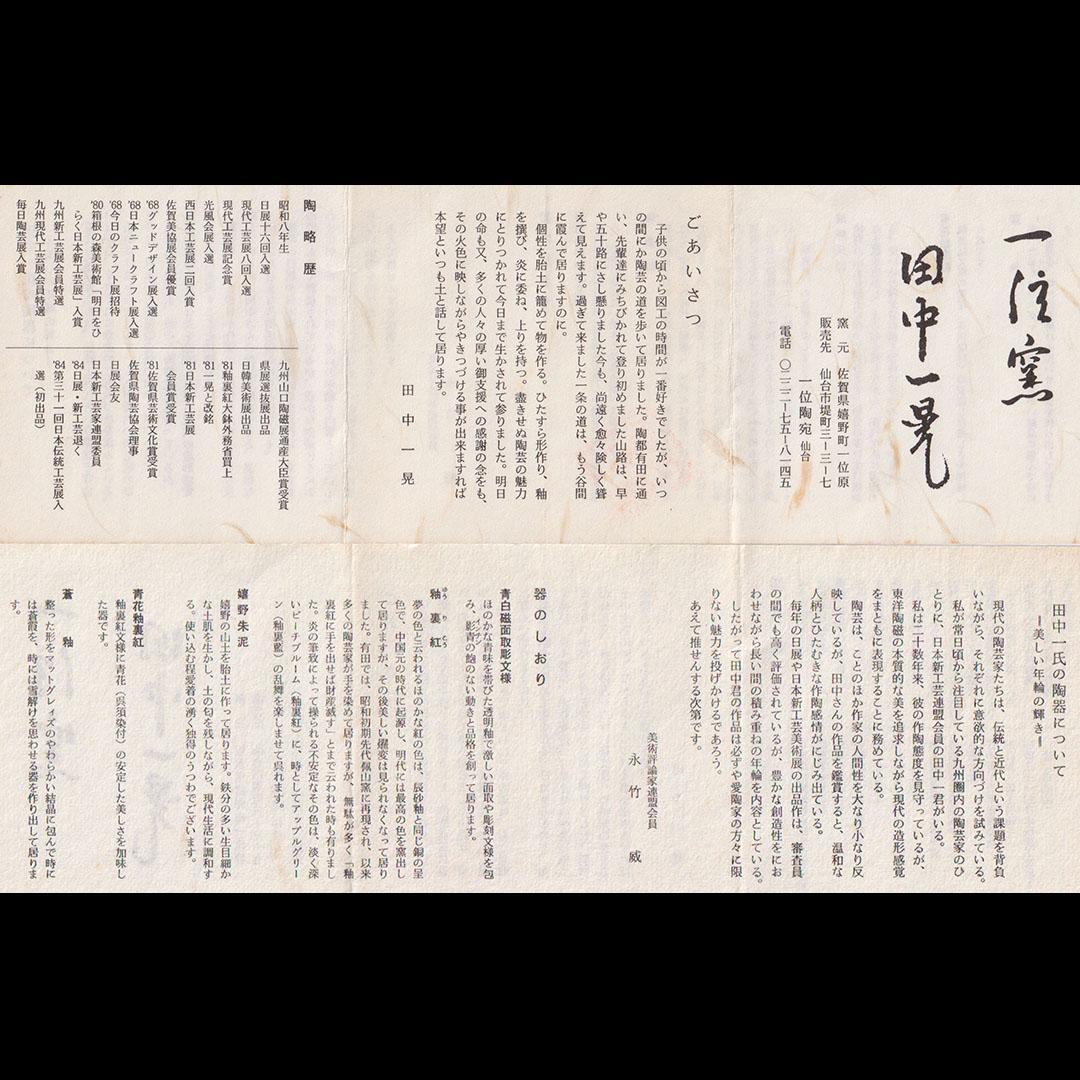 一位窯
田中一晃
窯元　佐賀県嬉野町一位原
販売先　仙台市堤町三ー三ー七
一位陶宛 仙台
電話　〇二二二ー七五ー八一四五
ごあいさつ
子供の頃から図工の時間が一番好きでしたが、いつ
の間にか陶芸の道を歩いて居りました。陶都有田に通
い、先輩達にみちびかれて登り初めました山路は、早
や五十路にさし懸りました今も、尚遠く愈々険しく聳
えて見えます。過ぎて来ました一条の道は、もう谷間
に霞んで居りますのに。
個性を胎土に籠めて物を作る。ひたすら形作り、釉
を撰び、炎に委ね、上りを持つ。盡きせぬ陶芸の魅力
にとりつかれて今日まで生かされて参りました。明日
の命も又、多くの人々の厚い御支援への感謝の念をも、
その火色に映しながらやきつづける事が出来ますれば
本望といつも土と話して居ります。
田中一晃
陶略歴
昭和八年生
日展十六回入選
現代工芸展八回入選
現代工芸展記念賞
光風会展入選
西日本工芸展二回入賞
佐賀美協展会員優賞
'68グッドデザイン展入選
'68日本ニュークラフト展入選
'68今日のクラフト展招待
'80箱根の森美術館「明日をひ
らく日本新工芸展」入賞
九州新工芸展会員特選
九州現代工芸展会員特選
毎日陶芸展入賞
九州山口陶磁展通産大臣賞受賞
県展選抜展出品
日韓美術展出品
'81釉裏紅大鉢外務省買上
'81一晃と改銘
'81日本新工芸展
会員賞受賞
'81佐賀県芸術文化賞受賞
佐賀県陶芸協会理事
日展会友
日本新工芸家連盟委員
'84日展・新工芸退く
'84第三十一回日本伝統工芸展入
選（初出品）
田中一氏の陶器について
ー美しい年輪の輝きー
現代の陶芸家たちは、伝統と近代という課題を背負
いながら、それぞれに意欲的な方向づけを試みている。
私が常日頃から注目している九州圏内の陶芸家のひ
とりに、日本新工芸連盟会員の田中一君がいる。
私は二十数年来、彼の作陶態度を見守っているが、
東洋陶磁の本質的な美を追求しながら現代の造形感覚
をまともに表現することに務めている。
陶芸は、ことのほか作家の人間性を大なり小なり反
映しているが、田中さんの作品を鑑賞すると、温和な
人柄とひたむきな作陶感情がにじみ出ている。
毎年の日展や日本新工芸美術展の出品作は、審査員
の間でも高く評価されているが、豊かな創造性をにお
わせながら長い間の積み重ねの年輪を内容としている。
したがって田中君の作品は必ずや愛陶家の方々に限
りない魅力を投げかけるであろう。
あえて推せんする次第です。
美術評論家連盟会員
永竹威
器のしおり
青白磁面取彫文様
ほのかな青味を帯びた透明釉で激しい面取や彫刻文様を包
み、影青の鮑のない動きと品格を創って居ります。
釉裏紅
夢の色と云われるほのかな紅の色は、辰砂釉と同じ銅の呈
色で、中国元の時代に起源し、明代には最高の色を窯出し
て居りますが、その後美しい窯変は見られなくなって居り
ました。有田では、昭和初期先代佩山窯に再現され、以来
多くの陶芸家が手を染めて居りますが、無駄が多く「釉
裏紅に手を出せば財産滅す」とまで云われた時も有りまし
た。炎の筆致によって操られる不安定なその色は、淡く深
いピーチブルーム（釉裏紅）に、時としてアップルグリー
ン（釉裏藍）の乱舞を楽しませて呉れます。
嬉野朱泥
嬉野の山土を胎土に作って居ります。鉄分の多い生目細か
な土肌を生かし、土の匂を残しながら、現代生活に調和す
る。使い込む程愛着の湧く独得のうつわでございます。
青花釉裏紅
釉裏紅文様に青花（呉須染付）の安定した美しさを加味し
た器です。
蒼釉
整った形をマットグレィズのやわらかい結晶に包んで時に
は蒼霞を、時には雪解けを思わせる器を作り出して居りま
す。